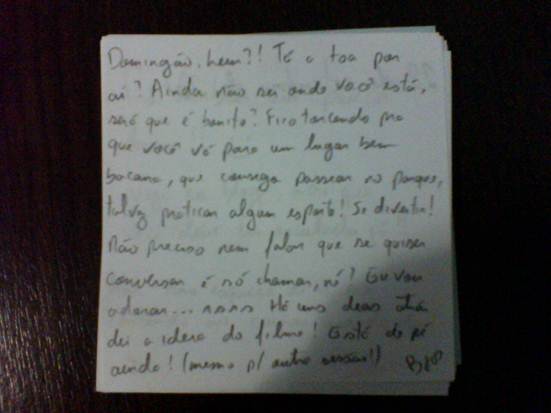 Domingão, hein?! Tá a toa por
aí? Ainda não sei onde você está,
será que é bonito? Fico torcendo pra
que você vá para um lugar bem
bacana, que consiga passear no parque,
talvez praticar algum esporte! Se divertir!
Não preciso nem falar que se quiser
conversar é só chamar, né? Eu vou
adorar... rsrsrs Há uns dias já
dei a ideia do filme! Está de pé
ainda! (mesmo p/ outra sessão!)